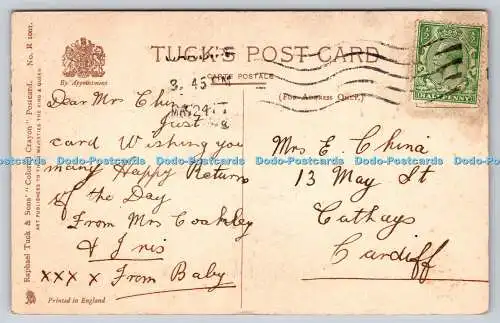 TUCK'S POST CARD
CARTE POSTALE
(FOR ADDRESS ONLY.)
By Appointment
Raphael Tuck & Sons' "Colour Crayon" Postcard. No. R 1001.
ART PUBLISHERS TO THEIR MAJESTIES THE KING & QUEEN.
3. 45 PM
MAY 24
HALFPENNY
Dear Mrs China
Just a
card Wishing you
many Happy Return
of the Day
From Mrs Coakley
& Iris
XXX X From Baby
Mrs E. China
13 May St
Cathays
Cardiff
Printed in England
Dodo-Postcards Dodo-Postcards Dodo-Postcards Dodo-Postcards